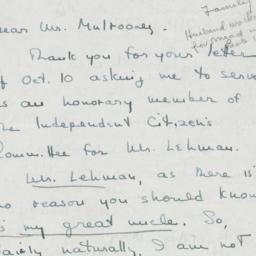 Family
dear Mr. Mulrooney.
Husband
Thank you for your letter
of Oct. 10 asking me to serve
as an honorary member of
the Independent Citizen's
Committee for Mr. Lehman.
Mr. Lehman, as there is
no reason you should know
is my great uncle. So,
fairly naturally, I am not